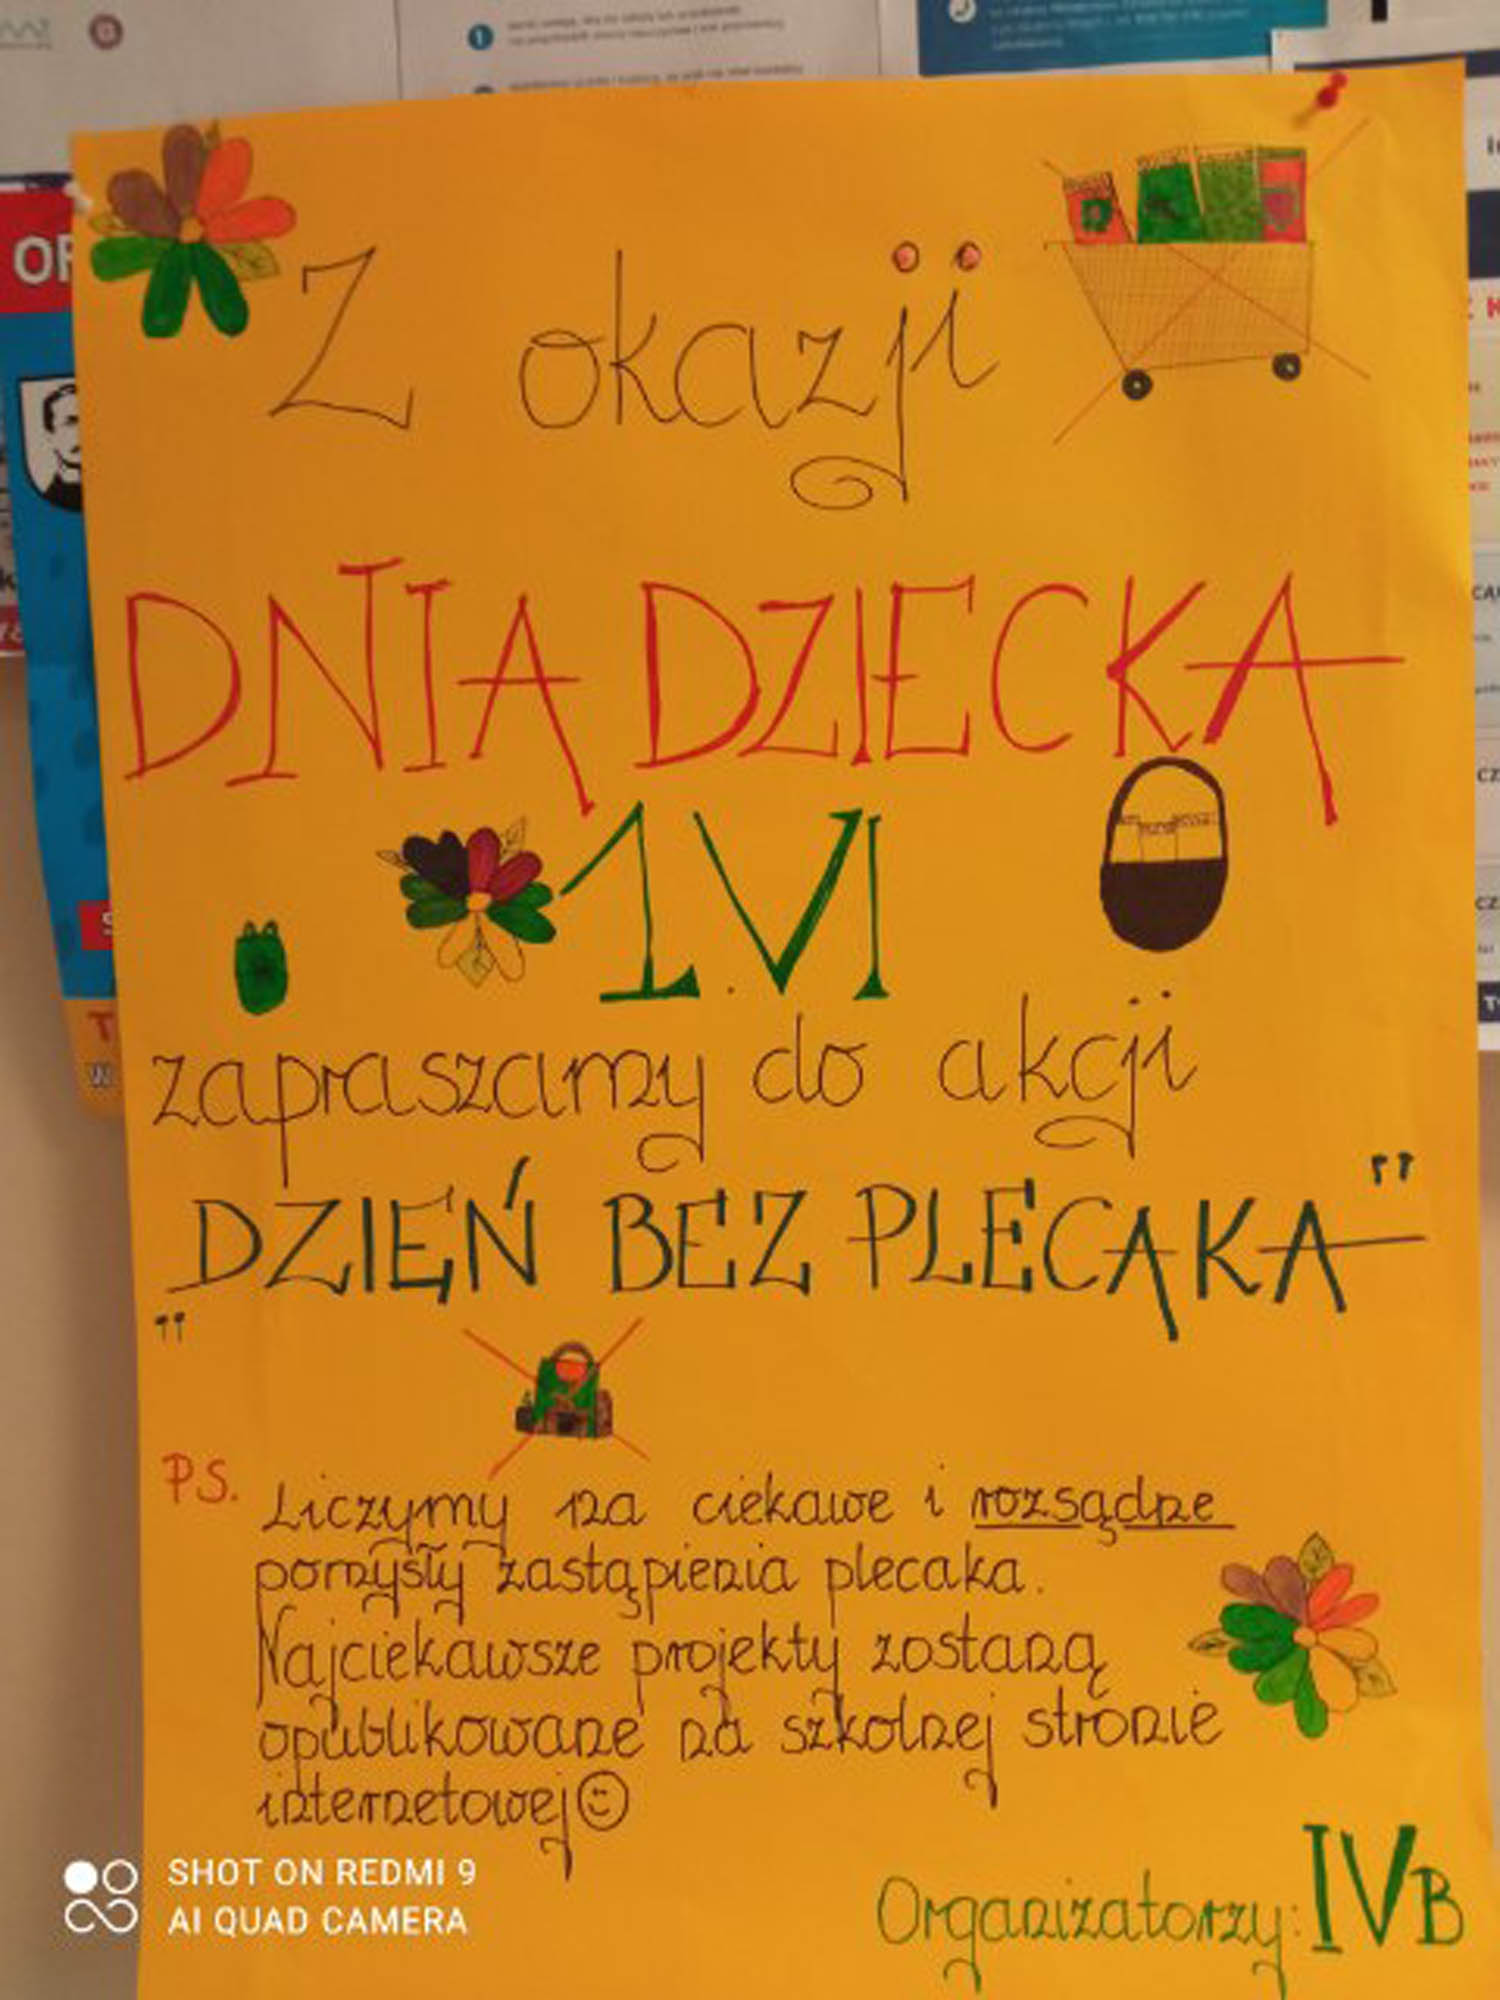 Z okazji
DNIA DZIECKA
1.VI
zapraszamy do akcji
"DZIEŃ BEZ PLECAKA"
PS. Liczymy na ciekawe i rozsądne
pomysły zastąpienia plecaka.
Najciekawsze projekty zostaną
opublikowane na szkolnej stronie
internetowej
Organizatorzy: IVB
SHOT ON REDMI 9
AI QUAD CAMERA